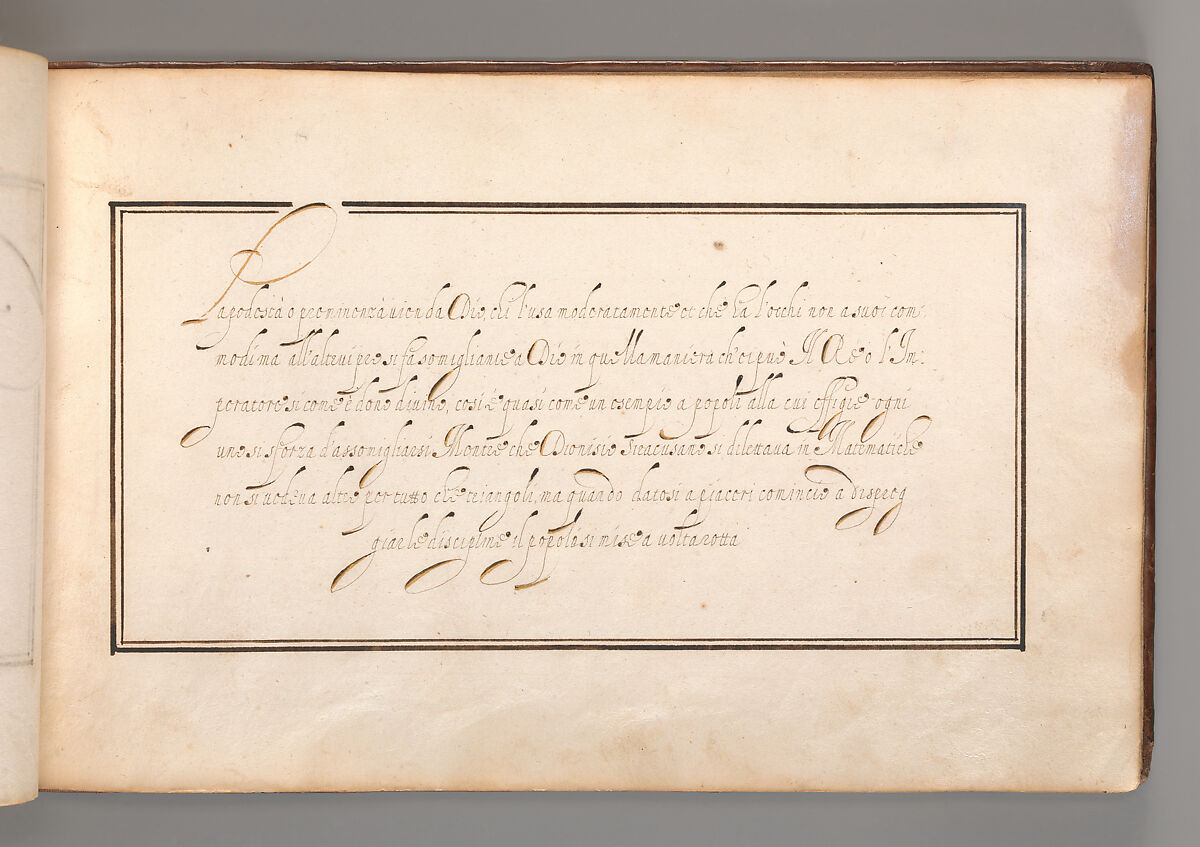 La podestà o preminenza vien da Dio, chi l'usa moderatamente et che ha l'occhi non a suoi com:
modi ma all'altrui pre si fa somigliante a Dio in quella maniera ch'ei può Il Re ò l'Im:
peratore si come è dono divino, cosi é quasi come un esempio a popoli alla cui effigie ogni
uno si sforza d'assomigliarsi Monte che Dionisio Siracusano si dilettava in Matematiche
non si vedeva altro per tutto che triangoli, ma quando datosi a piaceri cominciò a dispreg
giar le discipline il popolo si mise a volta rotta